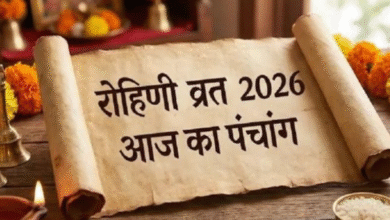 रोहिणी व्रत 2026
आज का पंचांग